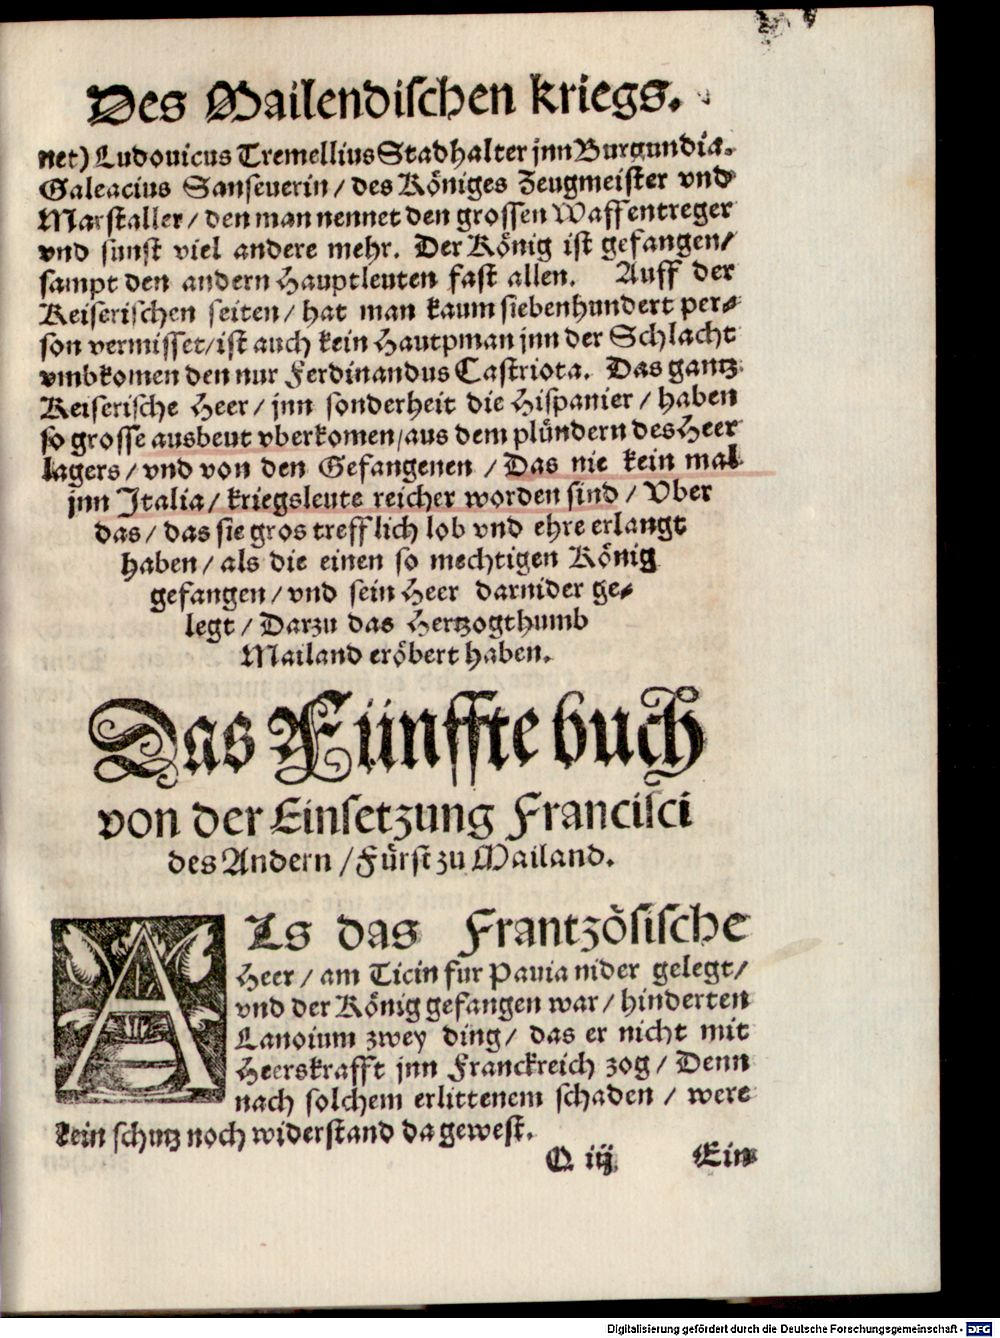 Des Mailendischen kriegs.
net) Ludouicus Tremellius Stadhalter jnn Burgundia.
Galeacius Sanseuerin / des Königes Zeugmeister vnd
Marstaller / den man nennet den grossen Waffentreger
vnd sunst viel andere mehr. Der König ist gefangen /
sampt den andern Hauptleuten fast allen. Auff der
Keiserischen seiten / hat man kaum siebenhundert per-
son vermisset / ist auch kein Hautpman jnn der Schlacht
vmbkomen den nur Ferdinandus Castriota. Das gantz
Keiserische Heer / jnn sonderheit die Hispanier / haben
so grosse ausbeut vberkomen / aus dem plündern des Heer
lagers / vnd von den Gefangenen / Das nie kein mal
jnn Italia / kriegsleute reicher worden sind / Vber
das / das sie gros trefflich lob vnd ehre erlangt
haben / als die einen so mechtigen König
gefangen / vnd sein Heer darnider ge-
legt / Darzu das Hertzogthumb
Mailand eröbert haben.
Das Fünffte buch
von der Einsetzung Francisci
des Andern / Fürst zu Mailand.
ALs das Frantzösische
Heer / am Ticin fur Pauia nider gelegt /
vnd der König gefangen war / hinderten
Lanoium zwey ding / das er nicht mit
Heerskrafft jnn Franckreich zog / Denn
nach solchem erlittenem schaden / were
kein schutz noch widerstand da gewest.
Q iij Ein
Digitalisierung gefördert durch die Deutsche Forschungsgemeinschaft - DFG